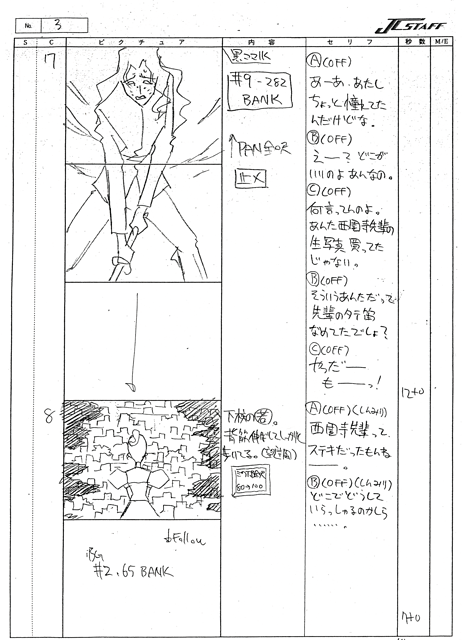 No. 3
J.C.STAFF
S
C
ピクチュア
内容
セリフ
秒数
M/E
17
黒コマIK
#9-282
BANK
↑PAN
止メ
Ⓐ(OFF)
あーあ、あたし
ちょっと憧れてた
んだけどな。
Ⓑ(OFF)
えー？どこが
いいのよあんなの。
Ⓒ(OFF)
何言ってんのよ。
あんた西園寺先輩の
生写真買ってた
じゃない。
Ⓑ(OFF)
そういうあんただって
先輩のタテ笛
なめてたでしょ？
Ⓒ(OFF)
やっだー
もーーっ！
12+0
8
下校の若。
歩いてる。
Ⓐ(OFF)(しんみり)
西園寺先輩って
ステキだったもんね
ーー。
Ⓑ(OFF)(しんみり)
どこでどうして
いらっしゃるのかしら
……。
Follow
BG
#2.65 BANK
7+0